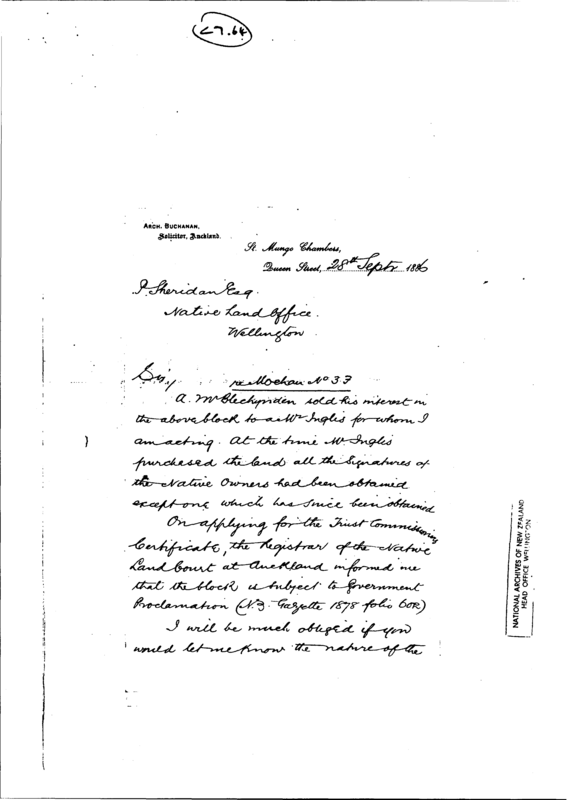 C7.64
ARCH. BUCHANAN,
Solicitor, Auckland.
St. Mungo Chambers,
Queen Street, 28th Septr 1886
P. Sheridan Esq.
Native Land Office.
Wellington
Sir, re Moehau No 3
A. McBlechynden sold his interest in
the above block to a Mr Inglis for whom I
am acting. At the time Mr Inglis
purchased the land all the Signatures of
the Native Owners had been obtained
except one which has since been obtained
On applying for the Trust Commissioners
Certificate, the Registrar of the Native
Land Court at Auckland informed me
that the block is subject to Government
Proclamation (N.Z. Gazette 1878 folio
I will be much obliged if you
would let me know the nature of the
NATIONAL ARCHIVES OF NEW ZEALAND
HEAD OFFICE WELLINGTON